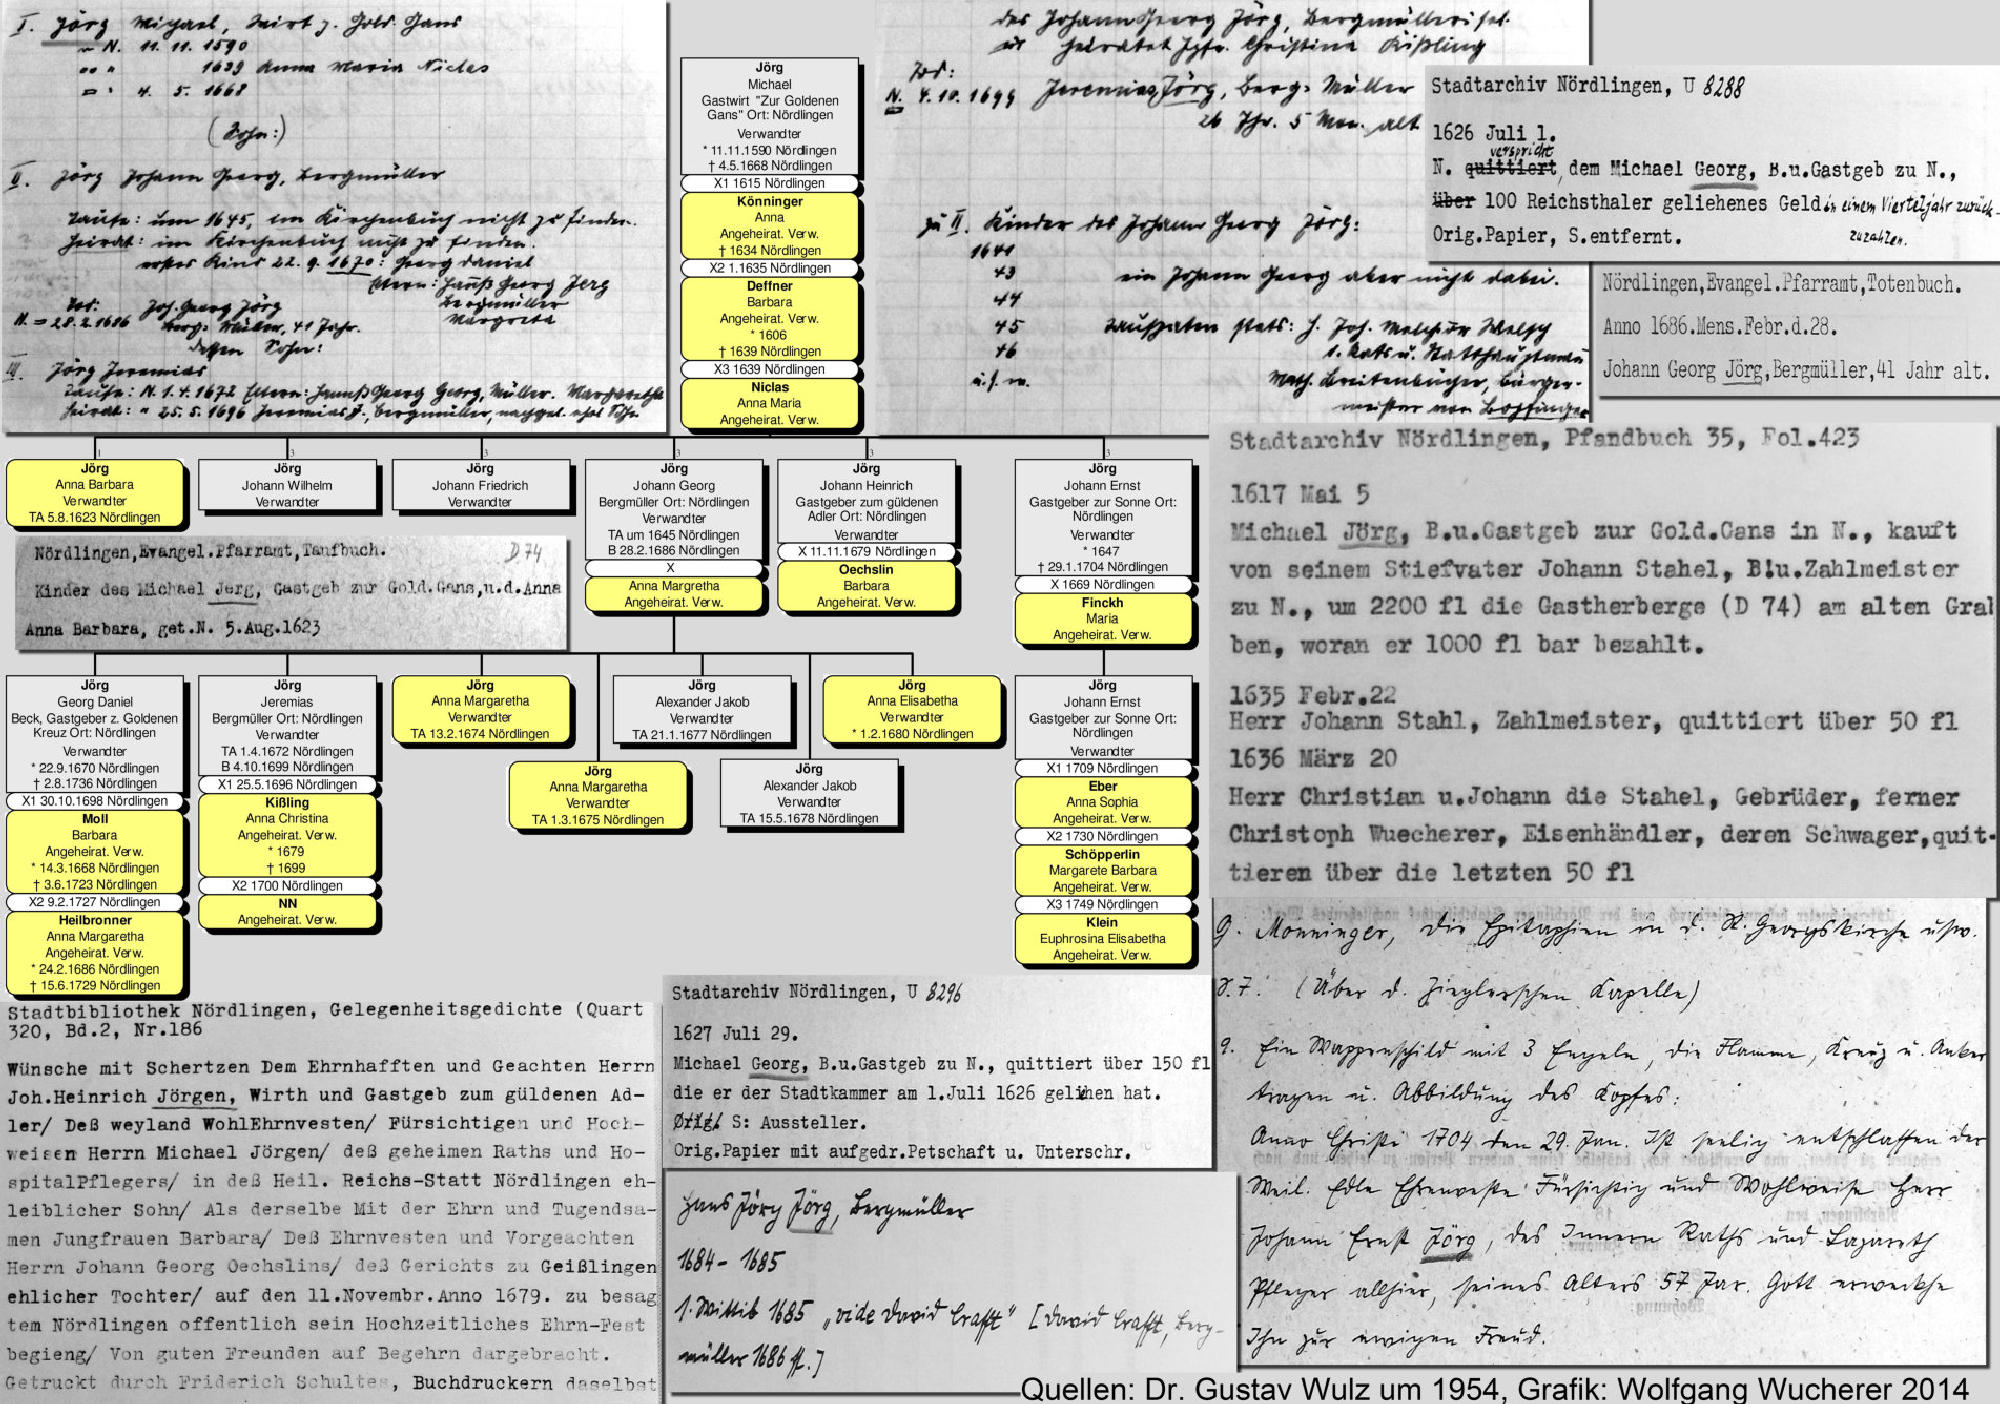 I. Jörg Michael, Wirt z. Gold. Gans
* N. 11. 11. 1590
∞ " 1639 Anna Maria Niclas
= " 4. 5. 1668
(Sohn:)
II. Jörg Johann Georg, Bergmüller
Taufe: um 1645, im Kirchenbuch nicht zu finden.
Heirat: im Kirchenbuch nicht zu finden.
erstes Kind 22. 9. 1670: Georg Daniel
Eltern: Hanß Georg Jerg
Bergmüller
Margreta
Tod: Joh. Georg Jörg
N. = 28. 2. 1686 Berg-Müller, 41 Jahr.
dessen Sohn:
III. Jörg Jeremias
Taufe: N. 1. 4. 1672 Eltern: Hannß Georg Georg, Müller. Margaretha
Heirat: " 25. 5. 1696 Jeremias J., Bergmüller, nachgel. ehel. Sohn
des Johann Georg Jörg, Bergmüllers sel.
heiratet Jgfr. Christina Kißling
Tod:
N. 4. 10. 1699 Jeremias Jörg, Berg-Müller
26 Jhr. 5 Mon. alt
zu II. Kinder des Johann Georg Jörg:
1641
43 ein Johann Georg aber nicht dabei.
44
45 Taufpaten stets: H. Joh. Melchior Welsch
46 d. Rats u. Statthauptmann
u.s.w. Math. Breitenbücher, Bürger-
meister von Bopfingen
Jörg
Michael
Gastwirt "Zur Goldenen
Gans" Ort: Nördlingen
Verwandter
* 11.11.1590 Nördlingen
† 4.5.1668 Nördlingen
X1 1615 Nördlingen
Könninger
Anna
Angeheirat. Verw.
† 1634 Nördlingen
X2 1.1635 Nördlingen
Deffner
Barbara
Angeheirat. Verw.
* 1606
† 1639 Nördlingen
X3 1639 Nördlingen
Niclas
Anna Maria
Angeheirat. Verw.
Stadtarchiv Nördlingen, U 8288
1626 Juli 1.
verspricht
N. quittiert, dem Michael Georg, B.u.Gastgeb zu N.,
über 100 Reichsthaler geliehenes Geld in einem Vierteljahr zurück-
Orig.Papier, S.entfernt. zuzahlen.
Nördlingen,Evangel.Pfarramt,Totenbuch.
Anno 1686.Mens.Febr.d.28.
Johann Georg Jörg,Bergmüller,41 Jahr alt.
1
Jörg
Anna Barbara
Verwandter
TA 5.8.1623 Nördlingen
3
Jörg
Johann Wilhelm
Verwandter
3
Jörg
Johann Friedrich
Verwandter
Jörg
Johann Georg
Bergmüller Ort: Nördlingen
Verwandter
TA um 1645 Nördlingen
B 28.2.1686 Nördlingen
X
Anna Margretha
Angeheirat. Verw.
3
Jörg
Johann Heinrich
Gastgeber zum güldenen
Adler Ort: Nördlingen
Verwandter
X 11.11.1679 Nördlingen
Oechslin
Barbara
Angeheirat. Verw.
3
Jörg
Johann Ernst
Gastgeber zur Sonne Ort:
Nördlingen
Verwandter
* 1647
† 29.1.1704 Nördlingen
X 1669 Nördlingen
Finckh
Maria
Angeheirat. Verw.
Nördlingen,Evangel.Pfarramt,Taufbuch. D 74
Kinder des Michael Jerg, Gastgeb zur Gold.Gans,u.d.Anna
Anna Barbara, get.N. 5.Aug.1623
Stadtarchiv Nördlingen, Pfandbuch 35, Fol.423
1617 Mai 5
Michael Jörg, B.u.Gastgeb zur Gold.Gans in N., kauft
von seinem Stiefvater Johann Stahel, B.u.Zahlmeister
zu N., um 2200 fl die Gastherberge (D 74) am alten Gra
ben, woran er 1000 fl bar bezahlt.
1635 Febr.22
Herr Johann Stahl, Zahlmeister, quittiert über 50 fl
1636 März 20
Herr Christian u.Johann die Stahel, Gebrüder, ferner
Christoph Wuecherer, Eisenhändler, deren Schwager,quit-
tieren über die letzten 50 fl
Jörg
Georg Daniel
Beck, Gastgeber z. Goldenen
Kreuz Ort: Nördlingen
Verwandter
* 22.9.1670 Nördlingen
† 2.8.1736 Nördlingen
X1 30.10.1698 Nördlingen
Moll
Barbara
Angeheirat. Verw.
* 14.3.1668 Nördlingen
† 3.6.1723 Nördlingen
X2 9.2.1727 Nördlingen
Heilbronner
Anna Margaretha
Angeheirat. Verw.
* 24.2.1686 Nördlingen
† 15.6.1729 Nördlingen
Jörg
Jeremias
Bergmüller Ort: Nördlingen
Verwandter
TA 1.4.1672 Nördlingen
B 4.10.1699 Nördlingen
X1 25.5.1696 Nördlingen
Kißling
Anna Christina
Angeheirat. Verw.
* 1679
† 1699
X2 1700 Nördlingen
NN
Angeheirat. Verw.
Jörg
Anna Margaretha
Verwandter
TA 13.2.1674 Nördlingen
Jörg
Anna Margaretha
Verwandter
TA 1.3.1675 Nördlingen
Jörg
Alexander Jakob
Verwandter
TA 21.1.1677 Nördlingen
Jörg
Alexander Jakob
Verwandter
TA 15.5.1678 Nördlingen
Jörg
Anna Elisabetha
Verwandter
* 1.2.1680 Nördlingen
Jörg
Johann Ernst
Gastgeber zur Sonne Ort:
Nördlingen
Verwandter
X1 1709 Nördlingen
Eber
Anna Sophia
Angeheirat. Verw.
X2 1730 Nördlingen
Schöpperlin
Margarete Barbara
Angeheirat. Verw.
X3 1749 Nördlingen
Klein
Euphrosina Elisabetha
Angeheirat. Verw.
Stadtbibliothek Nördlingen, Gelegenheitsgedichte (Quart
320, Bd.2, Nr.186
Wünsche mit Schertzen Dem Ehrnhafften und Geachten Herrn
Joh.Heinrich Jörgen, Wirth und Gastgeb zum güldenen Ad-
ler/ Deß weyland WohlEhrnvesten/ Fürsichtigen und Hoch-
weisen Herrn Michael Jörgen/ deß geheimen Raths und Ho-
spitalPflegers/ in deß Heil. Reichs-Statt Nördlingen eh-
leiblicher Sohn/ Als derselbe Mit der Ehrn und Tugendsa-
men Jungfrauen Barbara/ Deß Ehrnvesten und Vorgeachten
Herrn Johann Georg Oechslins/ deß Gerichts zu Geißlingen
ehlicher Tochter/ auf den 11.Novembr.Anno 1679. zu besag
tem Nördlingen offentlich sein Hochzeitliches Ehrn-Fest
begieng/ Von guten Freunden auf Begehrn dargebracht.
Getruckt durch Friderich Schultes, Buchdruckern daselbst
Stadtarchiv Nördlingen, U 8296
1627 Juli 29.
Michael Georg, B.u.Gastgeb zu N., quittiert über 150 fl
die er der Stadtkammer am 1.Juli 1626 gelihen hat.
Orig. S: Aussteller.
Orig.Papier mit aufgedr.Petschaft u. Unterschr.
Hans Jörg Jörg, Bergmüller
1684 - 1685
s. Wittib 1685 „vide David Crafft" [David Crafft, Berg-
müller 1686 ff.]
G. Monninger, Die Epitaphien in d. St. Georgskirche usw.
S. 7. (Über d. Zieglerschen Kapelle)
9. Ein Wappenschild mit 3 Engeln, die Flamme, Kreuz u. Anker
tragen u. Abbildung des Kopfes:
Anno Christi 1704 den 29. Jan. Ist seelig entschlaffen der
Weil. Edle Ehrenveste Fürsichtig und Wohlweise Herr
Johann Ernst Jörg, des Innern Raths und Lazareth
Pfleger allhier, seines Alters 57 Jar. Gott erwecke
Ihn zur ewigen Freud.
Quellen: Dr. Gustav Wulz um 1954, Grafik: Wolfgang Wucherer 2014